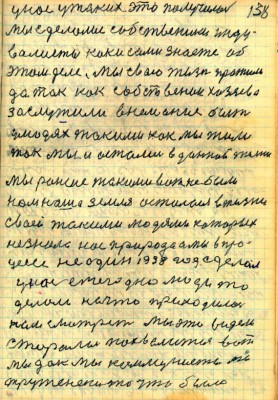 у нас у таких это получилось
138
мы сделали собственники инди-
валисты как и сами знаете об
этом деле, мы свою жизнь прожили
да так как собственники хозяева
заслужили внимание быть
людях такими как мы жили
так мы и остались в данной жизни
мы раньше такими вот не были
нам наша земля осталась в жизни
своей такими людями которых
не знала нас природа а мы в про-
цесе не один 1938 год сделал
у нас ежегодно люди то
делали на что приходилось
нам смотреть мы это видели
старались похвалится вот
мы да мы коммунисты мы
труженики то что было